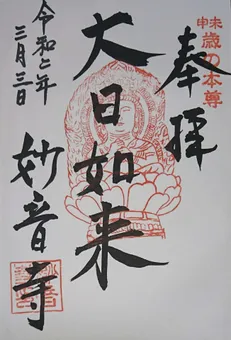 未申歳の本尊
奉拝
大日如来
令和七年
三月三日
妙音寺